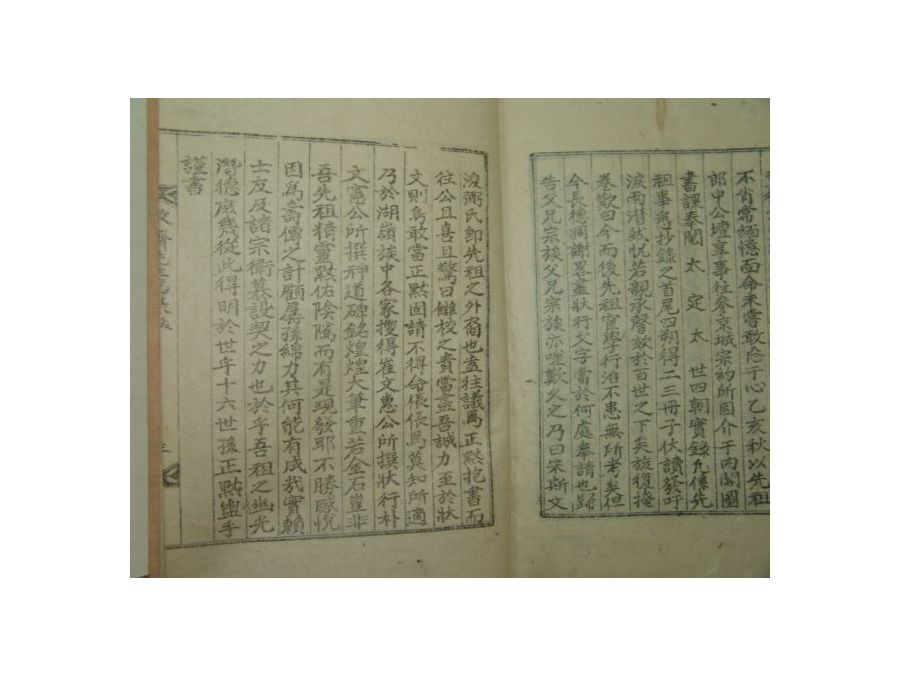 不肖常緬憶面命未嘗敢忘于心乙亥秋以先祖
郎中公壇享事往參京城宗約所因介于內閣圖
書課奉閱 太 定 太 世四朝實錄凡係先
祖事悉抄錄之首尾四朔得二三冊子伏讀發吁
淚雨潸然怳若親承謦欬於百世之下矣旋復掩
卷歎曰今而後先祖宦學行治不患無所考矣但
今長德凋謝畧盡狀行文字當於何處奉請也歸
告父兄宗族父兄宗族亦噓歎久之乃曰宋斯文
浚弼氏卽先祖之外裔也盍往議焉正默抱書而
往公且喜且驚曰讎校之責當盡吾誠力至於狀
文則烏敢當正默固請不得命倀倀焉莫知所適
乃於湖嶺族中各家搜得崔文惠公所撰狀行朴
文憲公所撰神道碑銘煌煌大筆重若金石豈非
吾先祖精靈默佑陰騭而有是現發耶不勝感悅
因爲壽傳之計顧孱孫綿力其何能有成哉實賴
士友及諸宗衛慕設契之力也於乎吾祖之幽光
潛德庶幾從此得明於世乎十六世孫正默盥手
謹書